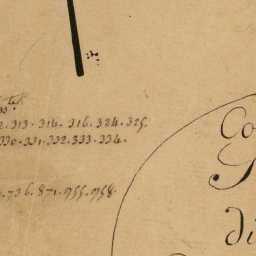 2. 313. 314. 316. 324. 325.
330. 331. 332. 333. 334.
. 736. 871. 955. 958.
Co
di